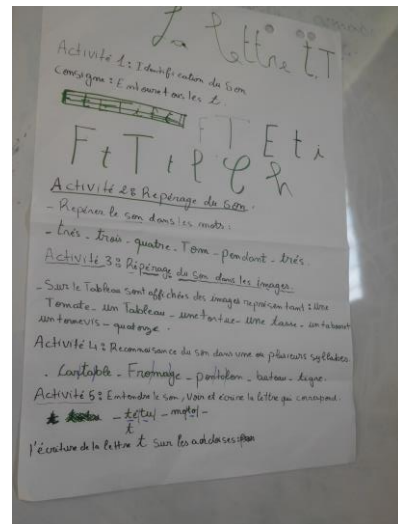 La lettre t.T
Activité 1: Identification du Son
Consigne: Entoure tous les t.
F T E t i
F t T t l C h
Activité 2: Repérage du Son.
- Repérer le son dans les mots:
- très - trois - quatre - Tom - pendant - très.
Activité 3: Répérage du son dans les images.
- Sur le Tableau sont affichées des images représentant: une
Tomate - un Tableau - une tortue - une tasse - un tabouret
un tournevis - quatorze.
Activité 4: Reconnaissance du son dans une ou plusieurs syllabes.
- Cartable - Fromage - pantalon - bateau - tigre.
Activité 5: Entendre le son, Voir et écrire la lettre qui correspond.
- têtu - motol -
t
l'écriture de la lettre t sur les ardoises